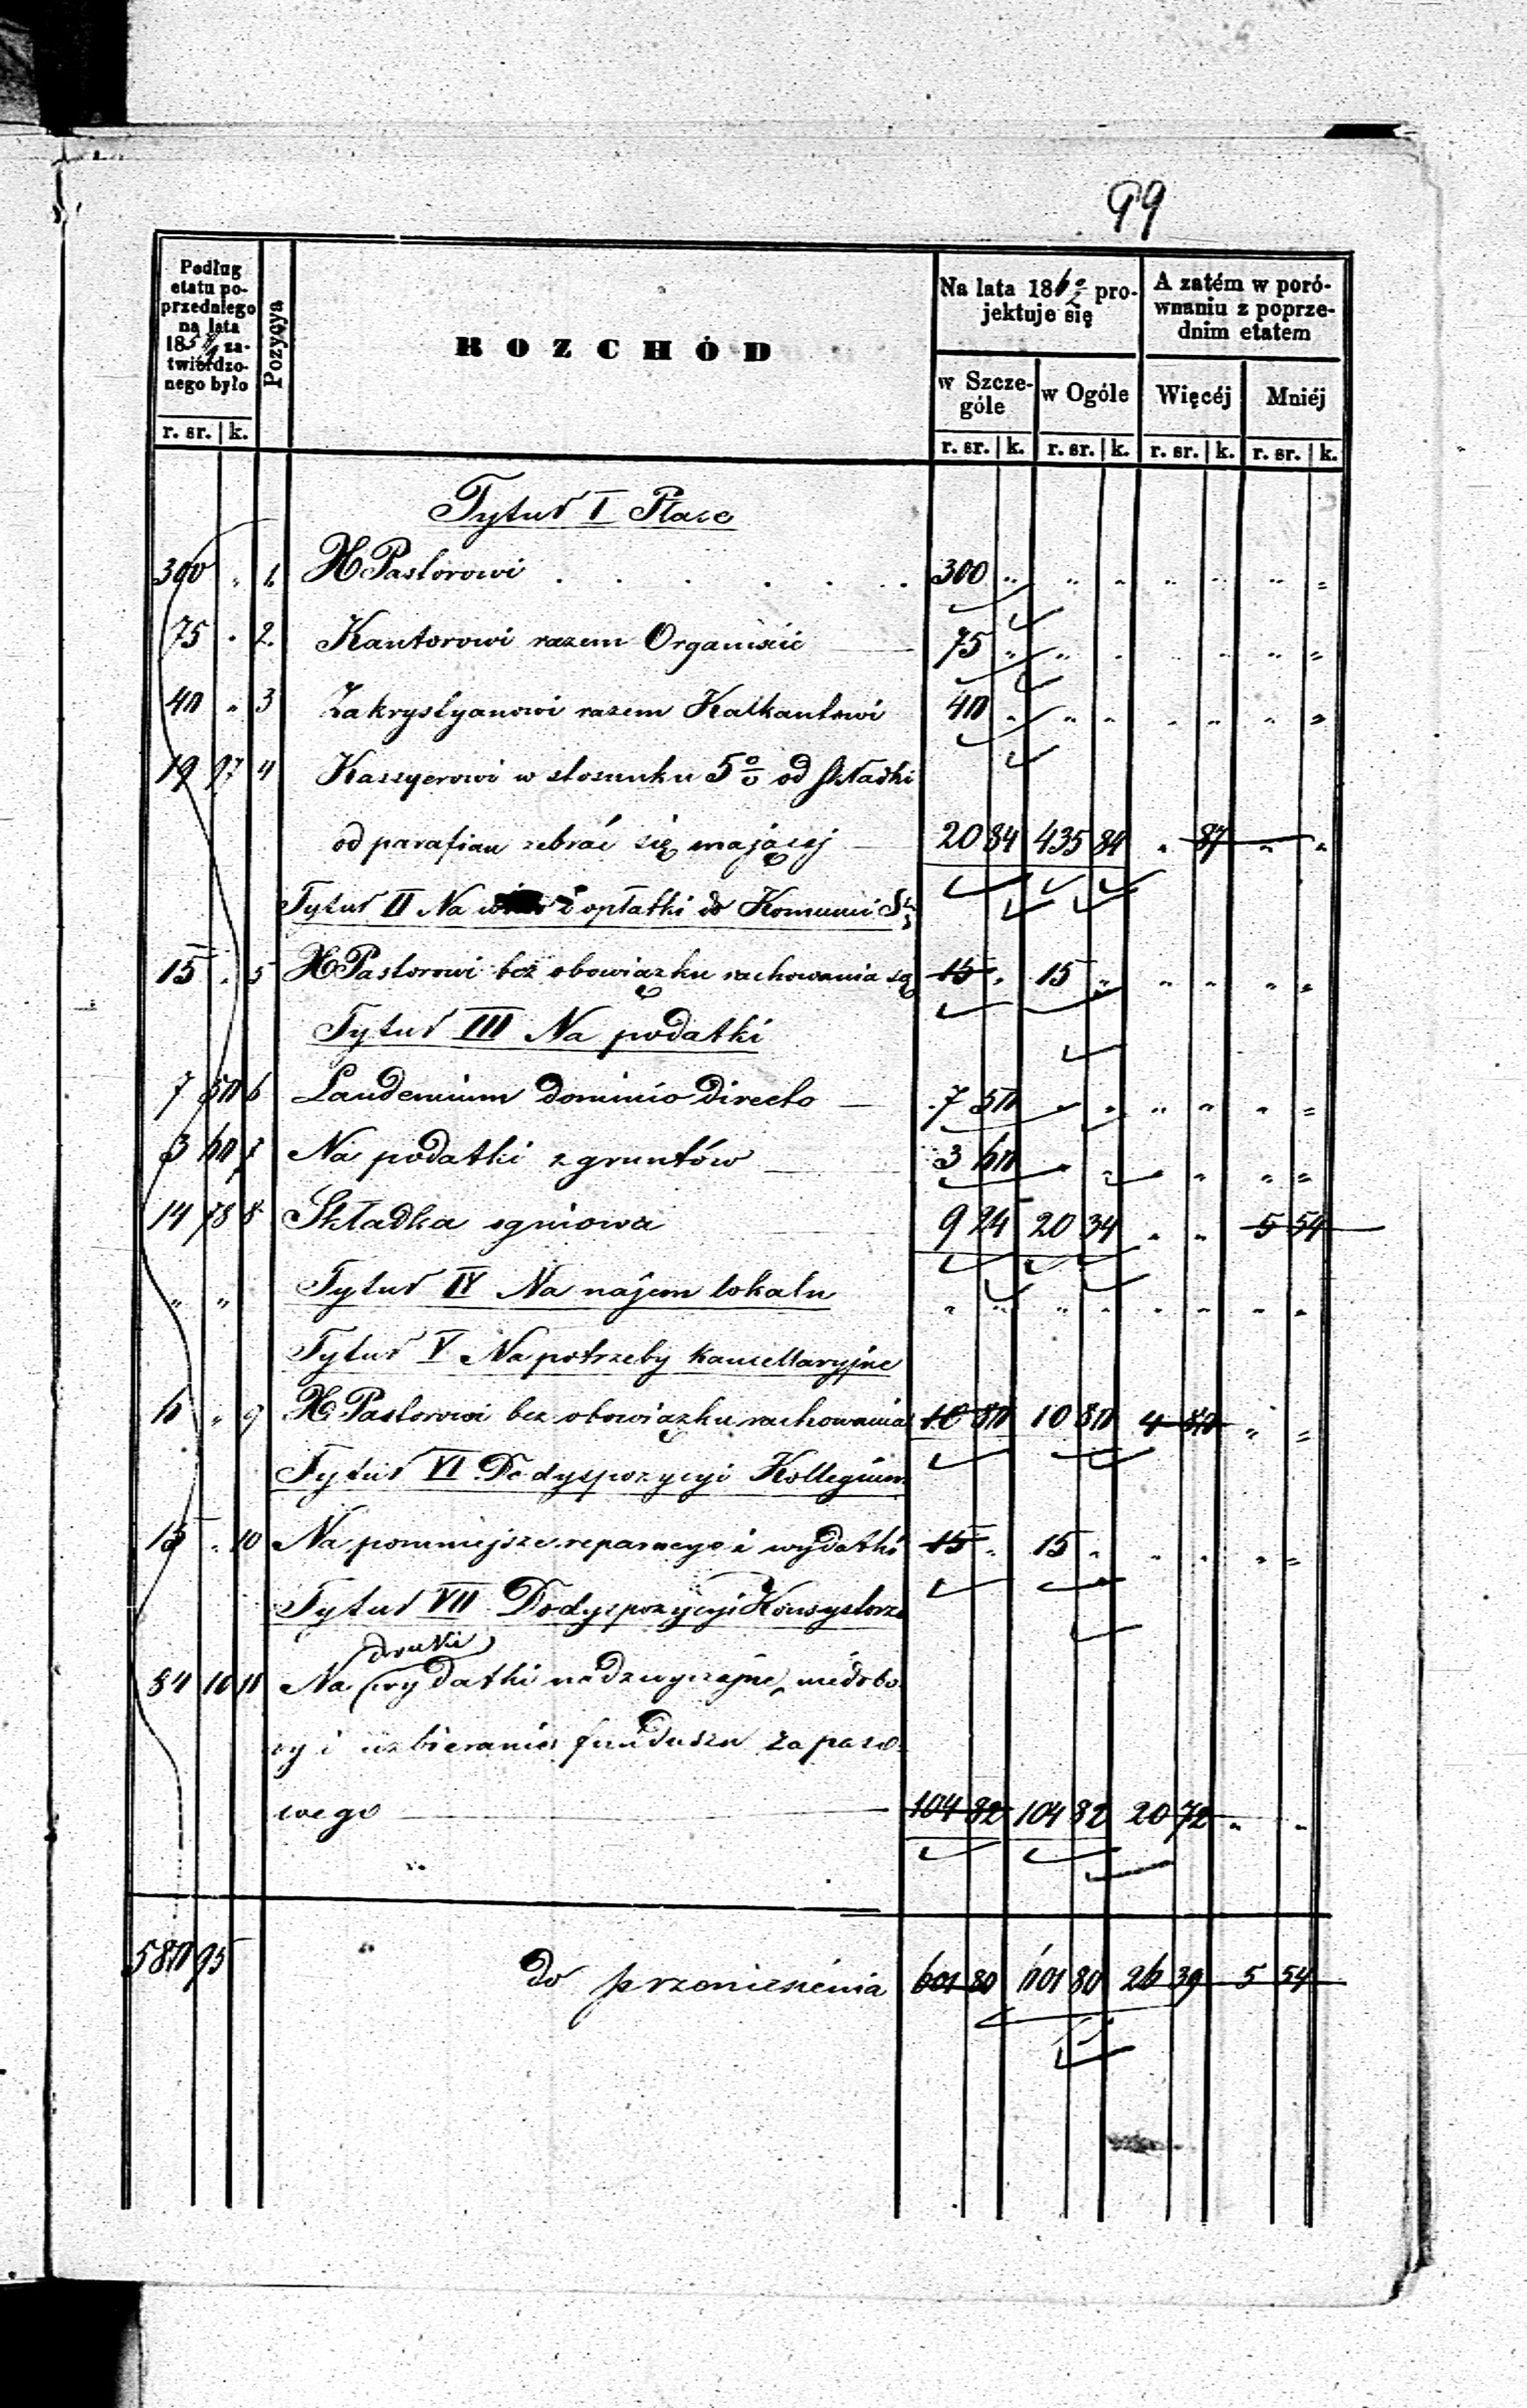 99
Podług etatu poprzedniego na lata 185 8/9 zatwierdzonego było
Pozycya
ROZCHÓD
Na lata 186 0/2 projektuje się
A zatém w porównaniu z poprzednim etatem
w Szczególe w Ogóle Więcéj Mniéj
r. sr. k. r. sr. k. r. sr. k. r. sr. k. r. sr. k.
Tytuł I Płace
300 " 1. X Pastorowi . . . . . . 300 " " " " " " "
75 " 2. Kantorowi razem Organiście — 75 " " " " " " "
40 " 3 Zakrystyanowi razem Kalkantowi 40 " " " " " " "
19 97 4 Kassyerowi w stosunku 5 % od składki
od parafian zebrać się mającej — 20 84 435 84 " 87 " "
Tytuł II Na wino i opłatki do Komunii Ś
15 " 5 X Pastorowi bez obowiązku rachowania się 15 " 15 " " " " "
Tytuł III Na podatki
7 50 6 Laudemium dominio directo — 7 50 " " " " " "
3 60 7 Na podatki z gruntów — 3 60 " " " " " "
14 78 8 Składka ogniowa 9 24 20 34 " " 5 54
" " Tytuł IV Na najem lokalu " " " " " " " "
Tytuł V Na potrzeby kancellaryjne
6 " 9 X Pastorowi bez obowiązku rachowania 10 80 10 80 4 80 " "
Tytuł VI Do dyspozycyi Kollegium
15 " 10 Na pomniejsze reparacye i wydatki 15 " 15 " " " " "
Tytuł VII Do dyspozycyi Konsystorza
druki
84 10 11 Na wydatki nadzwyczajne, niedobo-
ry i uzbieranie funduszu zapaso-
wego — 104 82 104 82 20 72 " "
580 95 do przeniesienia 601 80 601 80 26 39 5 54